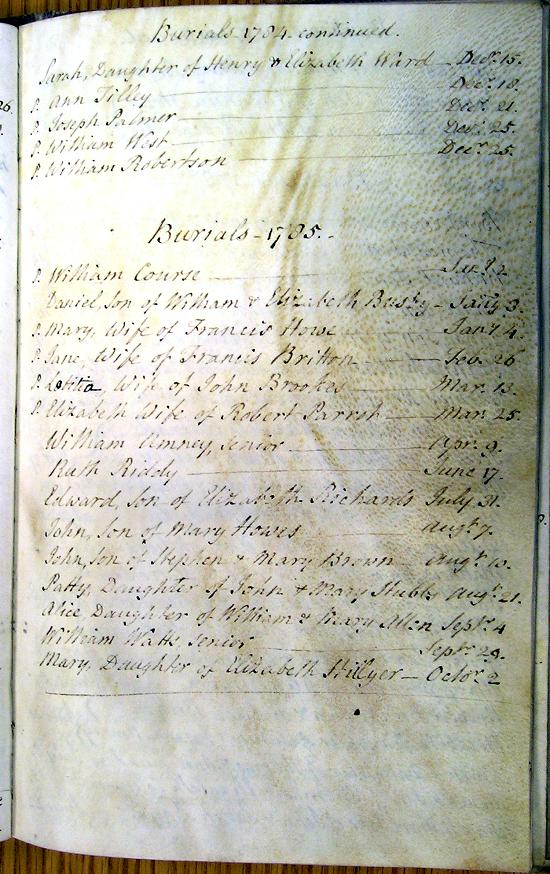 Burials 1784 continued.
Sarah, Daughter of Henry & Elizabeth Ward Decr. 15.
P. Ann Tilley Decr. 18.
P. Joseph Palmer Decr. 21.
P. William West Decr. 25.
P. William Robertson Decr. 25.
Burials - 1785.
P. William Course Jany. 2
Daniel, Son of William & Elizabeth Busby - Jany 3.
P. Mary, Wife of Francis Howe Jany 4.
P. Jane, Wife of Francis Britton Feb. 26
P. Letitia, Wife of John Brookes Mar. 13.
P. Elizabeth Wife of Robert Parrish Mar. 25.
William Umney, Senior Apr. 9.
Ruth Riddy June 17.
Edward, Son of Elizabeth Richards July 31.
John, Son of Mary Howes Augt. 7.
John, Son of Stephen & Mary Brown Augt. 10.
Patty, Daughter of John & Mary Augt. 21.
Alice Daughter of William & Mary Allen Septr. 4
William Watts, Senior Septr. 29.
Mary, Daughter of Elizabeth Hillyer - Octor. 2
26.